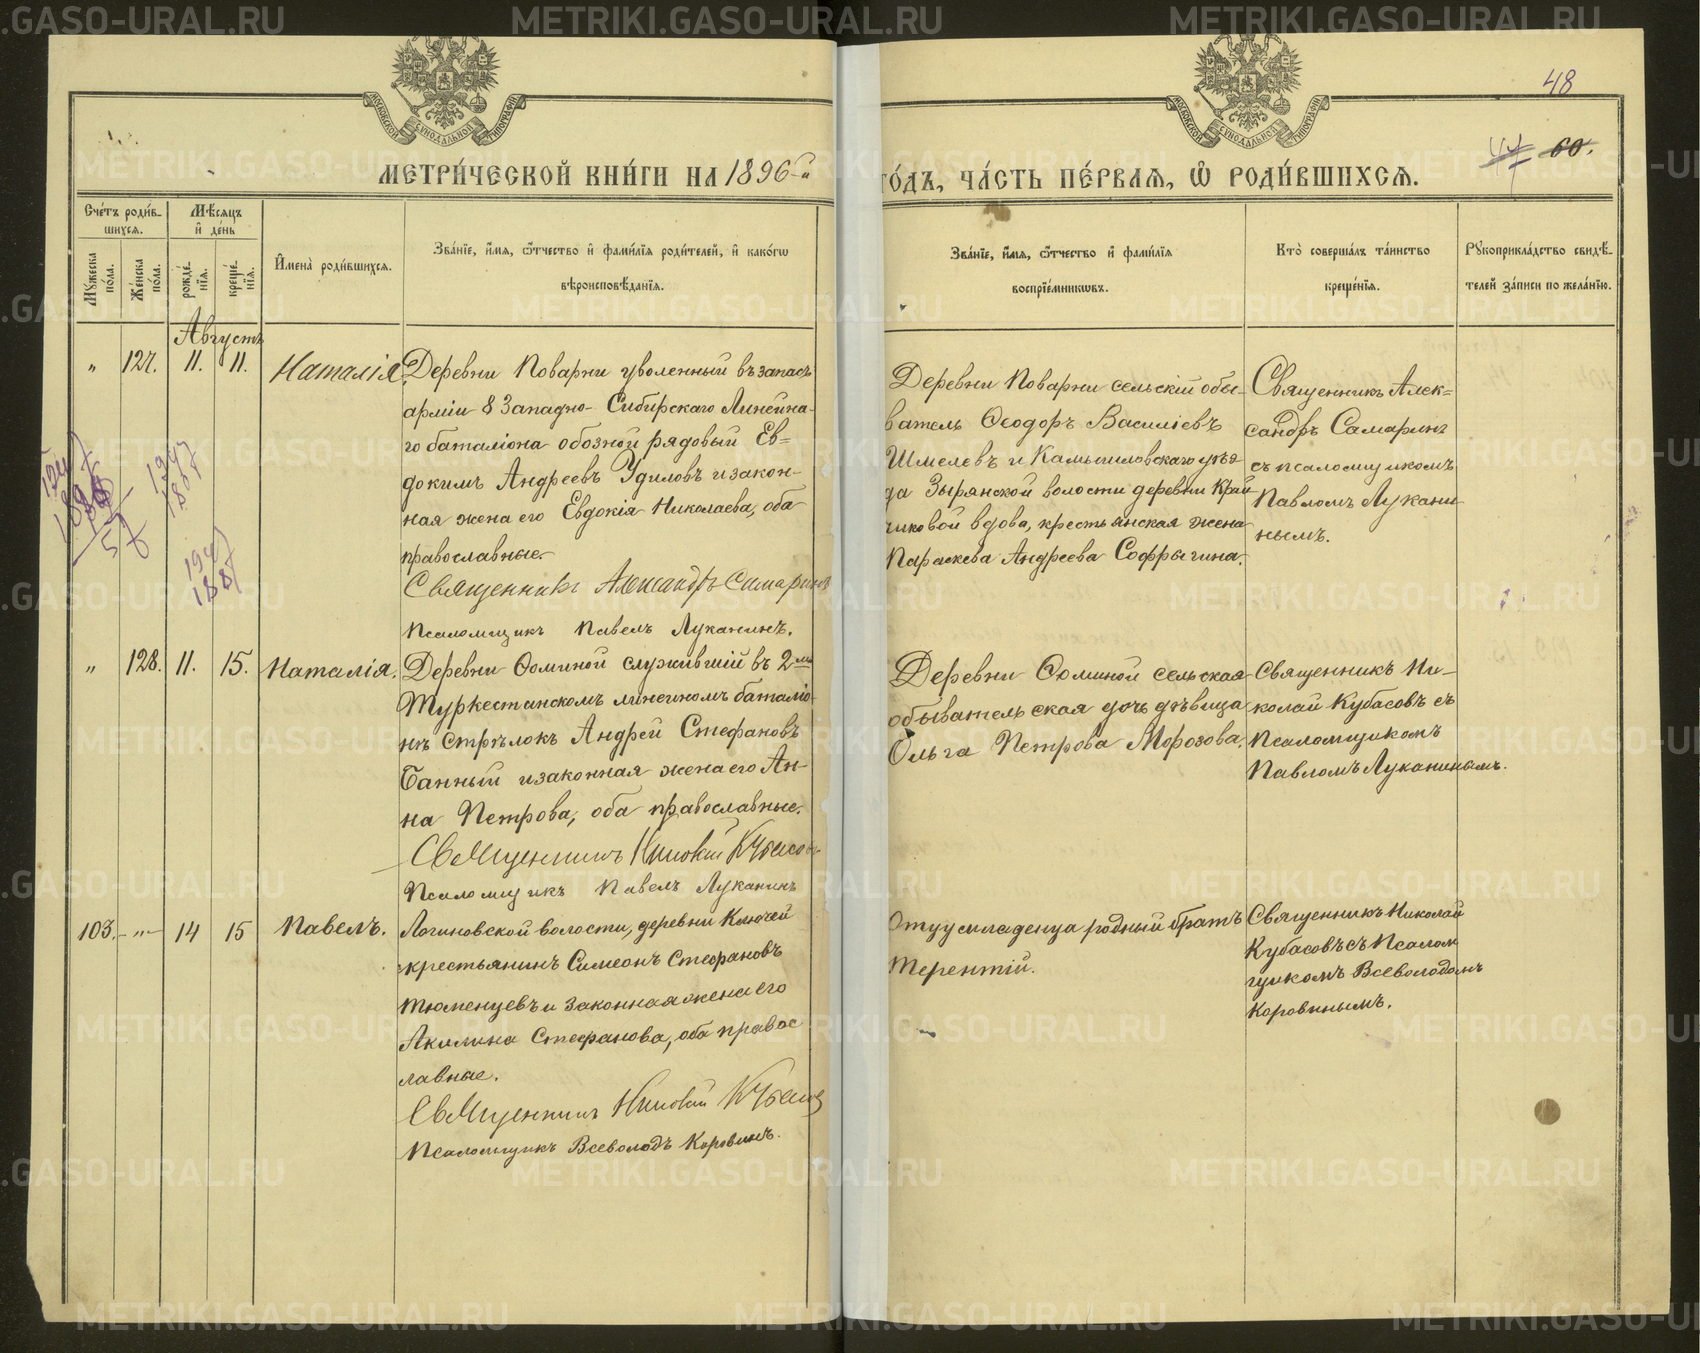 48
47 60.
МОСКОВСКОЙ СѴНОДАЛЬНОЙ ТИПОГРАФІИ
МОСКОВСКОЙ СѴНОДАЛЬНОЙ ТИПОГРАФІИ
МЕТРИ́ЧЕСКОЙ КНИ́ГИ НА 1896
ГО́ДЪ, ЧА́СТЬ ПЕ́РВАЯ, Ѡ РОДИ́ВШИХСЯ.
Сче́тъ роди́в-
шихся.
Мѣ́сяцъ
и҆ де́нь
Мꙋ́жеска
по́ла.
Же́нска
по́ла.
рожде́-
нїѧ.
креще́-
нїѧ.
И҆мена̀ роди́вшихся.
Зва́нїе, и҆́мя, ѻ҆́тчество и҆ фами́лїя роди́телей, и҆ како́гѡ
вѣроисповѣ́данїя.
Зва́нїе, и҆́мя, ѻ҆́тчество и҆ фами́лїя
воспрїе́мникѡвъ.
Кто̀ соверша́лъ та́инство
креще́нїя.
Рꙋкоприкла́дство свидѣ́-
телей за́писи по жела́нїю.
Августъ
„ 127. 11. 11. Наталія.
Деревни Поварни уволенный въ запасъ
арміи 8 Западно-Сибирскаго Линейна-
го баталіона обозной рядовый Ев-
докимъ Андреевъ Удиловъ и закон-
ная жена его Евдокія Николаева, оба
православные.
Священникъ Александръ Самаринъ
Псаломщикъ Павелъ Луканинъ.
Деревни Поварни сельскій обы-
ватель Ѳеодоръ Василіевъ
Шмелевъ и Камышловскаго уѣз-
да Зырянской волости деревни Край-
чиковой вдова, крестьянская жена
Параскева Андреева Софрыгина.
Священникъ Алек=
сандръ Самаринъ
съ псаломщикомъ
Павломъ Лукани-
нымъ.
1947
1887
1947
1887
„ 128. 11. 15. Наталія.
Деревни Ѳоминой служившій въ 2-мъ
Туркестанскомъ линейномъ баталіо-
нѣ стрѣлокъ Андрей Стефановъ
Банный и законная жена его Ан-
на Петрова, оба православные.
Священникъ Николай Кубасовъ
Псаломщикъ Павелъ Луканинъ
Деревни Ѳоминой сельская
обывательская дочь дѣвица
Ольга Петрова Морозова.
Священникъ Ни-
колай Кубасовъ съ
Псаломщикомъ
Павломъ Луканинымъ.
103. „ 14 15 Павелъ.
Логиновской волости, деревни Ключей
крестьянинъ Симеонъ Стефановъ
Тюменцевъ и законная жена его
Акилина Стефанова, оба правос
лавные.
Священникъ Николай Кубасовъ
Псаломщикъ Всеволодъ Коровинъ.
Отцу младенца родный братъ
Терентій.
Священникъ Николай
Кубасовъ съ Псалом
щикомъ Всеволодомъ
Коровинымъ.
METRIKI.GASO-URAL.RU